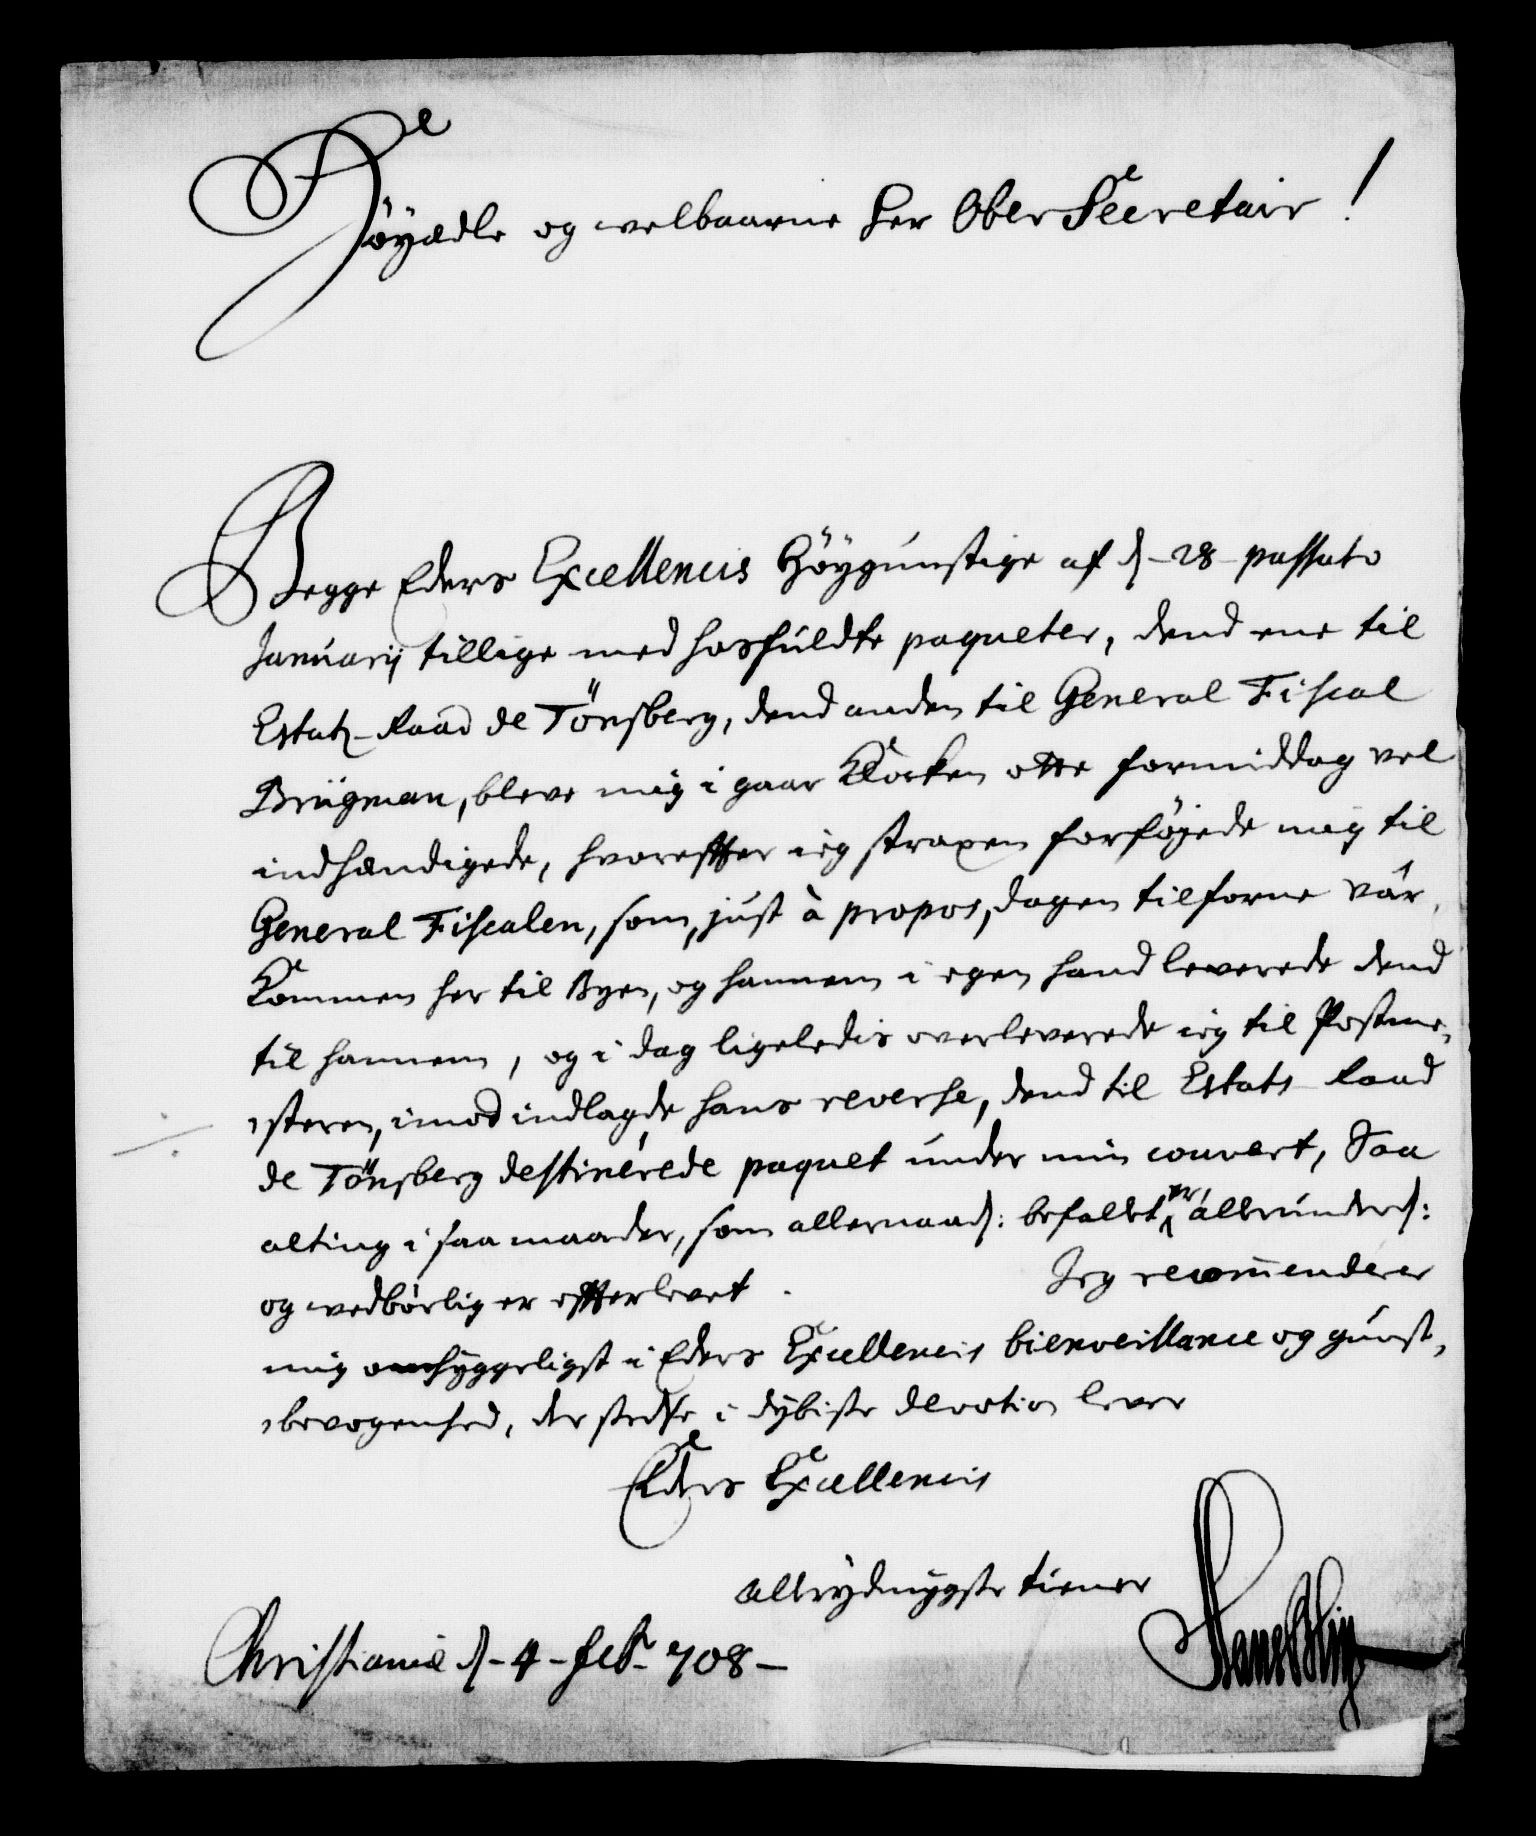 Høyædle og welbaarne Her Ober Secretair!
Begge Eders Excellencis Høygunstige af d. 28 passato
Januarij tillige med hosfuldte paqueter, dend ene til
Estatz-Raad de Tønsberg, dend anden til General Fiscal
Brügman, bleve mig i gaar Klocken otte formiddag vel
indhændigede, hvoreffter ieg straxen forføjede mig til
General Fiscalen, som, just à propos, dagen tilforne vár
Kommen her til Byen, og hannem i egen hand leverede dend
til hannem, og i dag ligeledis overleverede ieg til Postme-
steren, imod indlagde hans reverse, dend til Estats-Raad
de Tønsberg destinerede paquet under min couvert, Saa
alting i saa maader, som allernaad: befallet er, allerunderd:
og wedbørlig er effterlevet. Jeg recom̄enderer
mig omhyggeligst i Eders Excellencis bienveillance og gunst-
bevogenhed, der stedse i dybiste devotion lever
Eders Excellencis
allerydmygste tiener
Christiania d. 4 Febr. 708